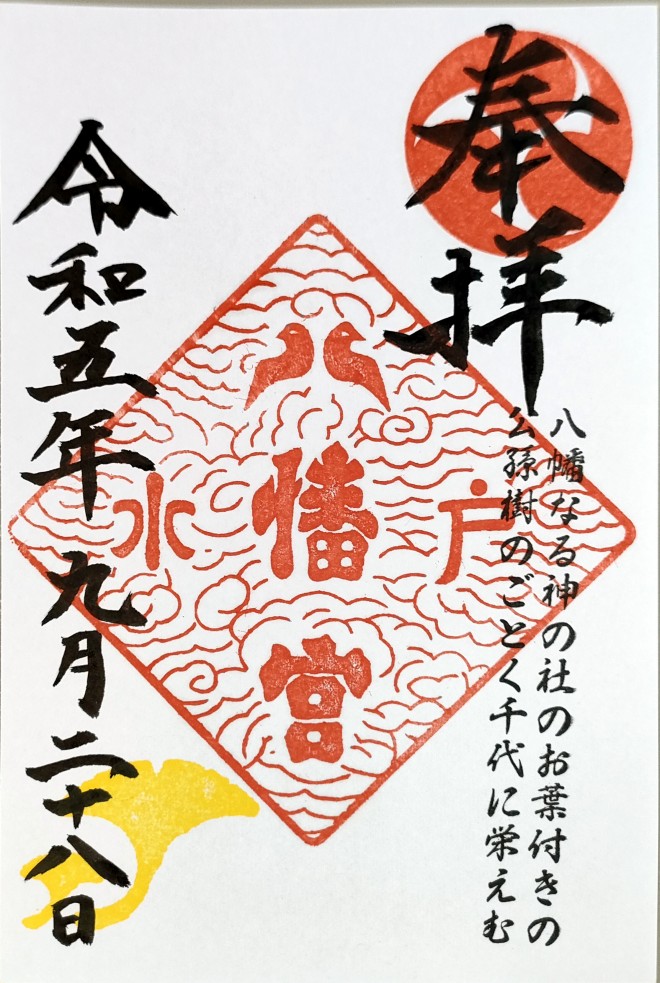 奉拝
八幡なる神の社のお葉付きの
公孫樹のごとく千代に栄えむ
水戸
八幡宮
令和五年九月二十八日